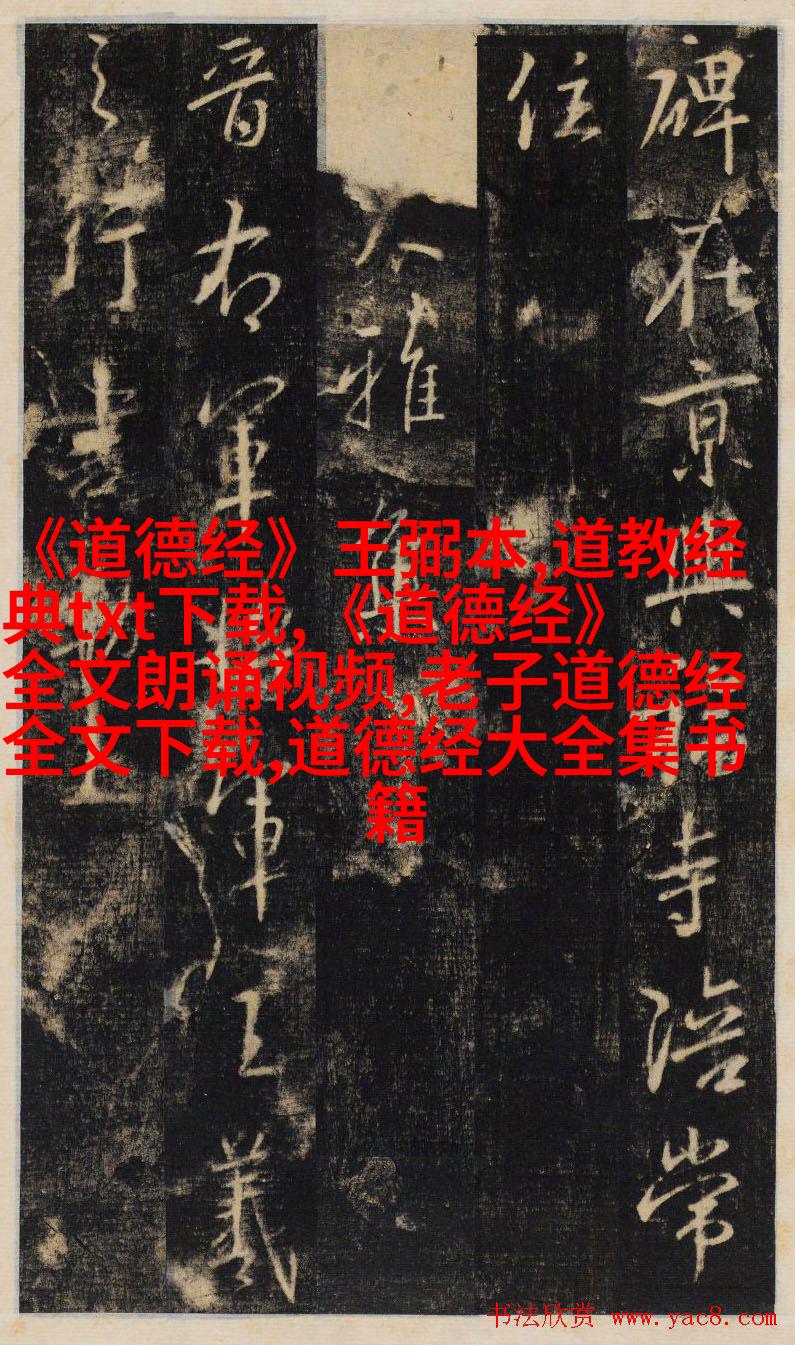 碑在京興寺陪常
住
雅集
晋右軍將軍王羲
之行書勒上
《道德经》王弼本,道教经
典txt下载,《道德经》
全文朗诵视频,老子道德经
全文下载,道德经大全集书
籍
书法欣赏 www.yac8.com